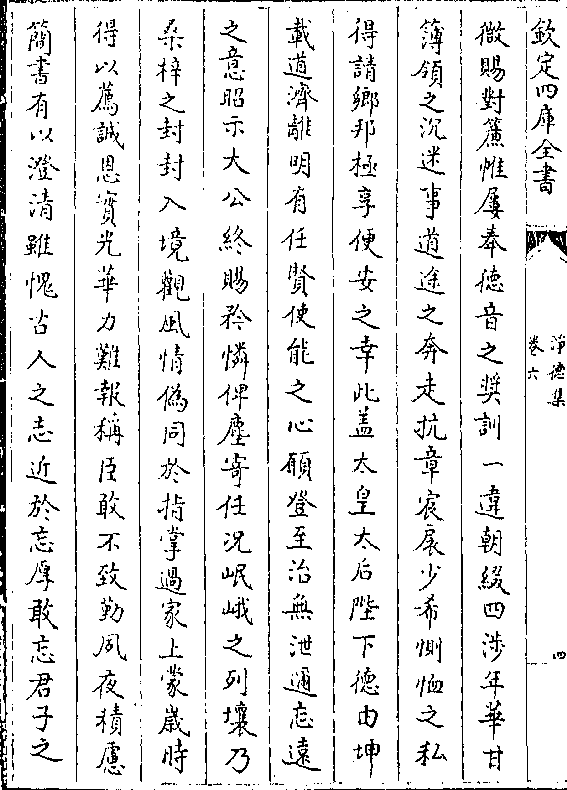 欽定四庫全書
淨德集
卷六
四
微賜對簾帷屢奉德音之奬訓一違朝綴四涉年華甘
簿領之沉迷事道途之奔走抗章宸扆少希惻恤之私
得請鄉邦極享便安之幸此盖太皇太后陛下德由坤
載道濟離明有任賢使能之心願登至治無泄邇忘遠
之意昭示大公終賜矜憐俾塵寄任况岷峨之列壤乃
桑梓之封封入境觀風情偽同於指掌過家上蒙嵗時
得以薦誠恩實光華力難報稱臣敢不致勤夙夜積慮
簡書有以澄清雖愧古人之志近於忘厚敢忘君子之